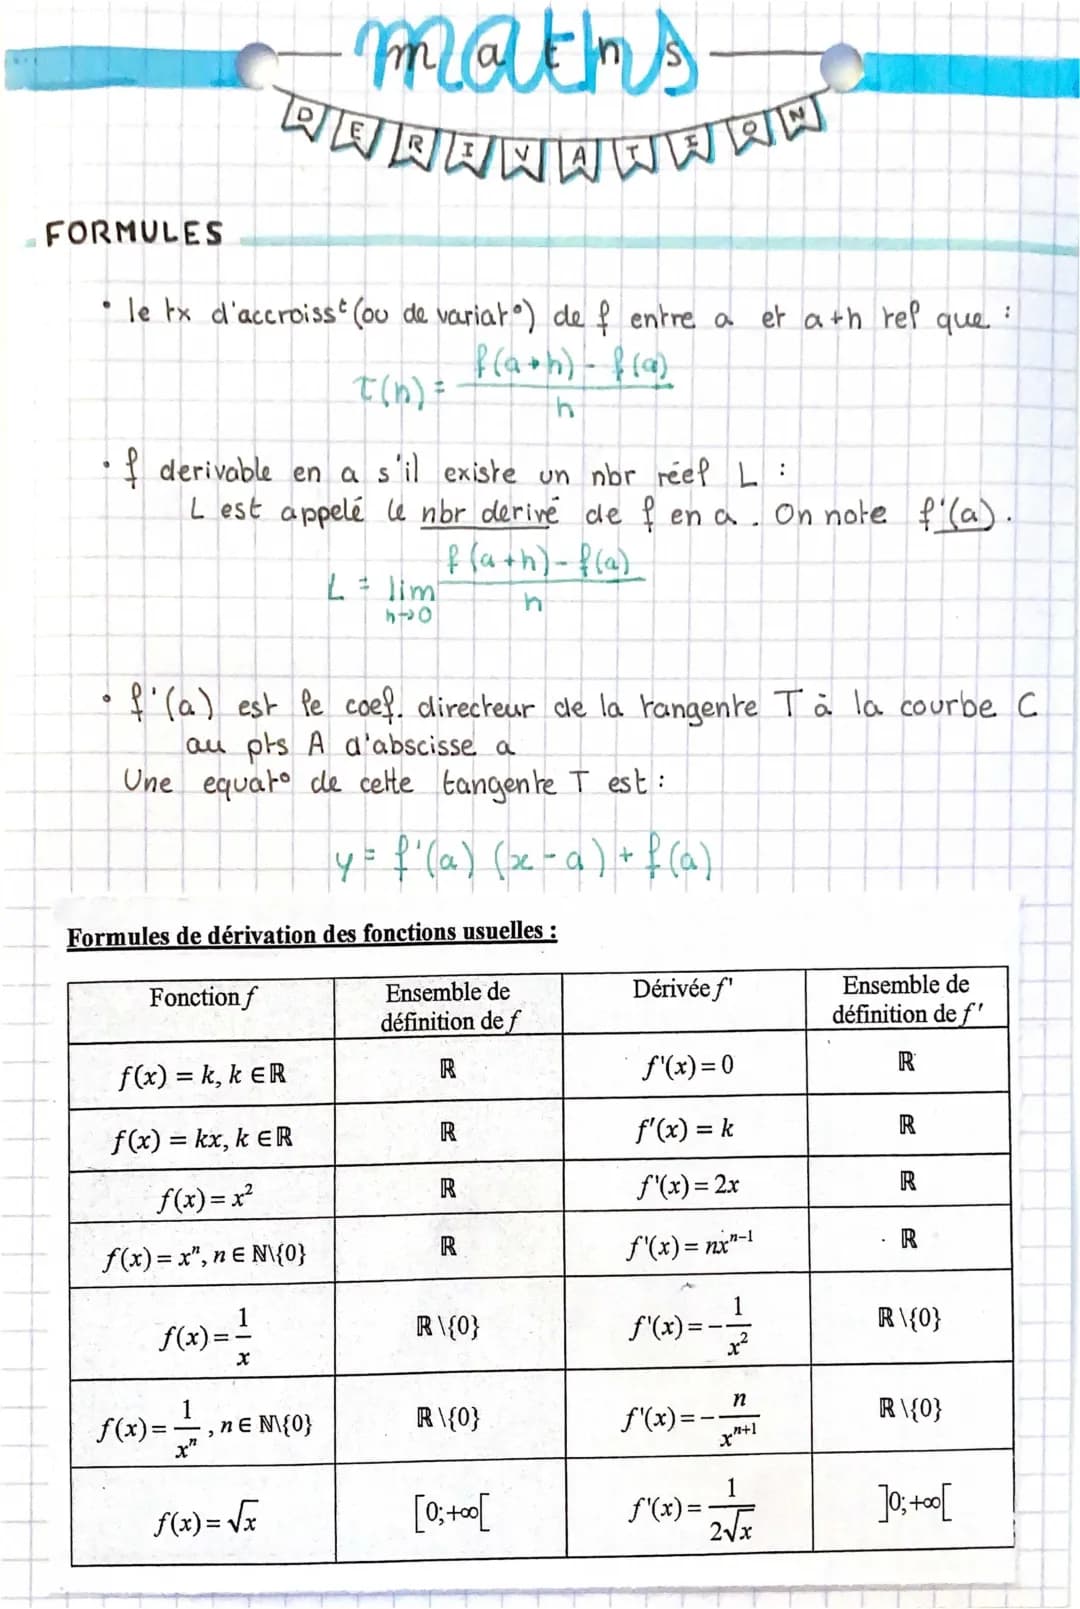 maths
DERIVATION
FORMULES
• le tx d'accroiss^t (ou de variat°) de f entre a et a+h tel que :
τ(h) = (f(a+h) - f(a)) / h
• f derivable en a s'il existe un nbr réel L :
L est appelé le nbr derivé de f en a. On note f'(a).
L = lim h→0 (f(a+h) - f(a)) / h
• f'(a) est le coef. directeur de la tangente T à la courbe C
au pts A d'abscisse a
Une equat° de cette tangente T est :
y = f'(a) (x-a) + f(a)
Formules de dérivation des fonctions usuelles :
Fonction f | Ensemble de définition de f | Dérivée f' | Ensemble de définition de f'
f(x) = k, k ∈ ℝ | ℝ | f'(x) = 0 | ℝ
f(x) = kx, k ∈ ℝ | ℝ | f'(x) = k | ℝ
f(x) = x² | ℝ | f'(x) = 2x | ℝ
f(x) = xⁿ, n ∈ ℕ\{0} | ℝ | f'(x) = nxⁿ⁻¹ | ℝ
f(x) = 1/x | ℝ\{0} | f'(x) = -1/x² | ℝ\{0}
f(x) = 1/xⁿ, n ∈ ℕ\{0} | ℝ\{0} | f'(x) = -n/xⁿ⁺¹ | ℝ\{0}
f(x) = √x | [0;+∞[ | f'(x) = 1/(2√x) | ]0;+∞[